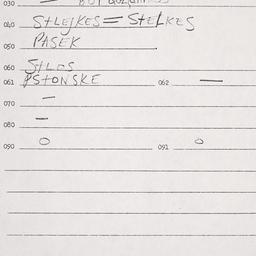 030 —
040 STLEJKES = STELKES
PASEK
050
060 STLOS
061 PSTONSKE 062 —
070 —
080 —
090 O 091 O